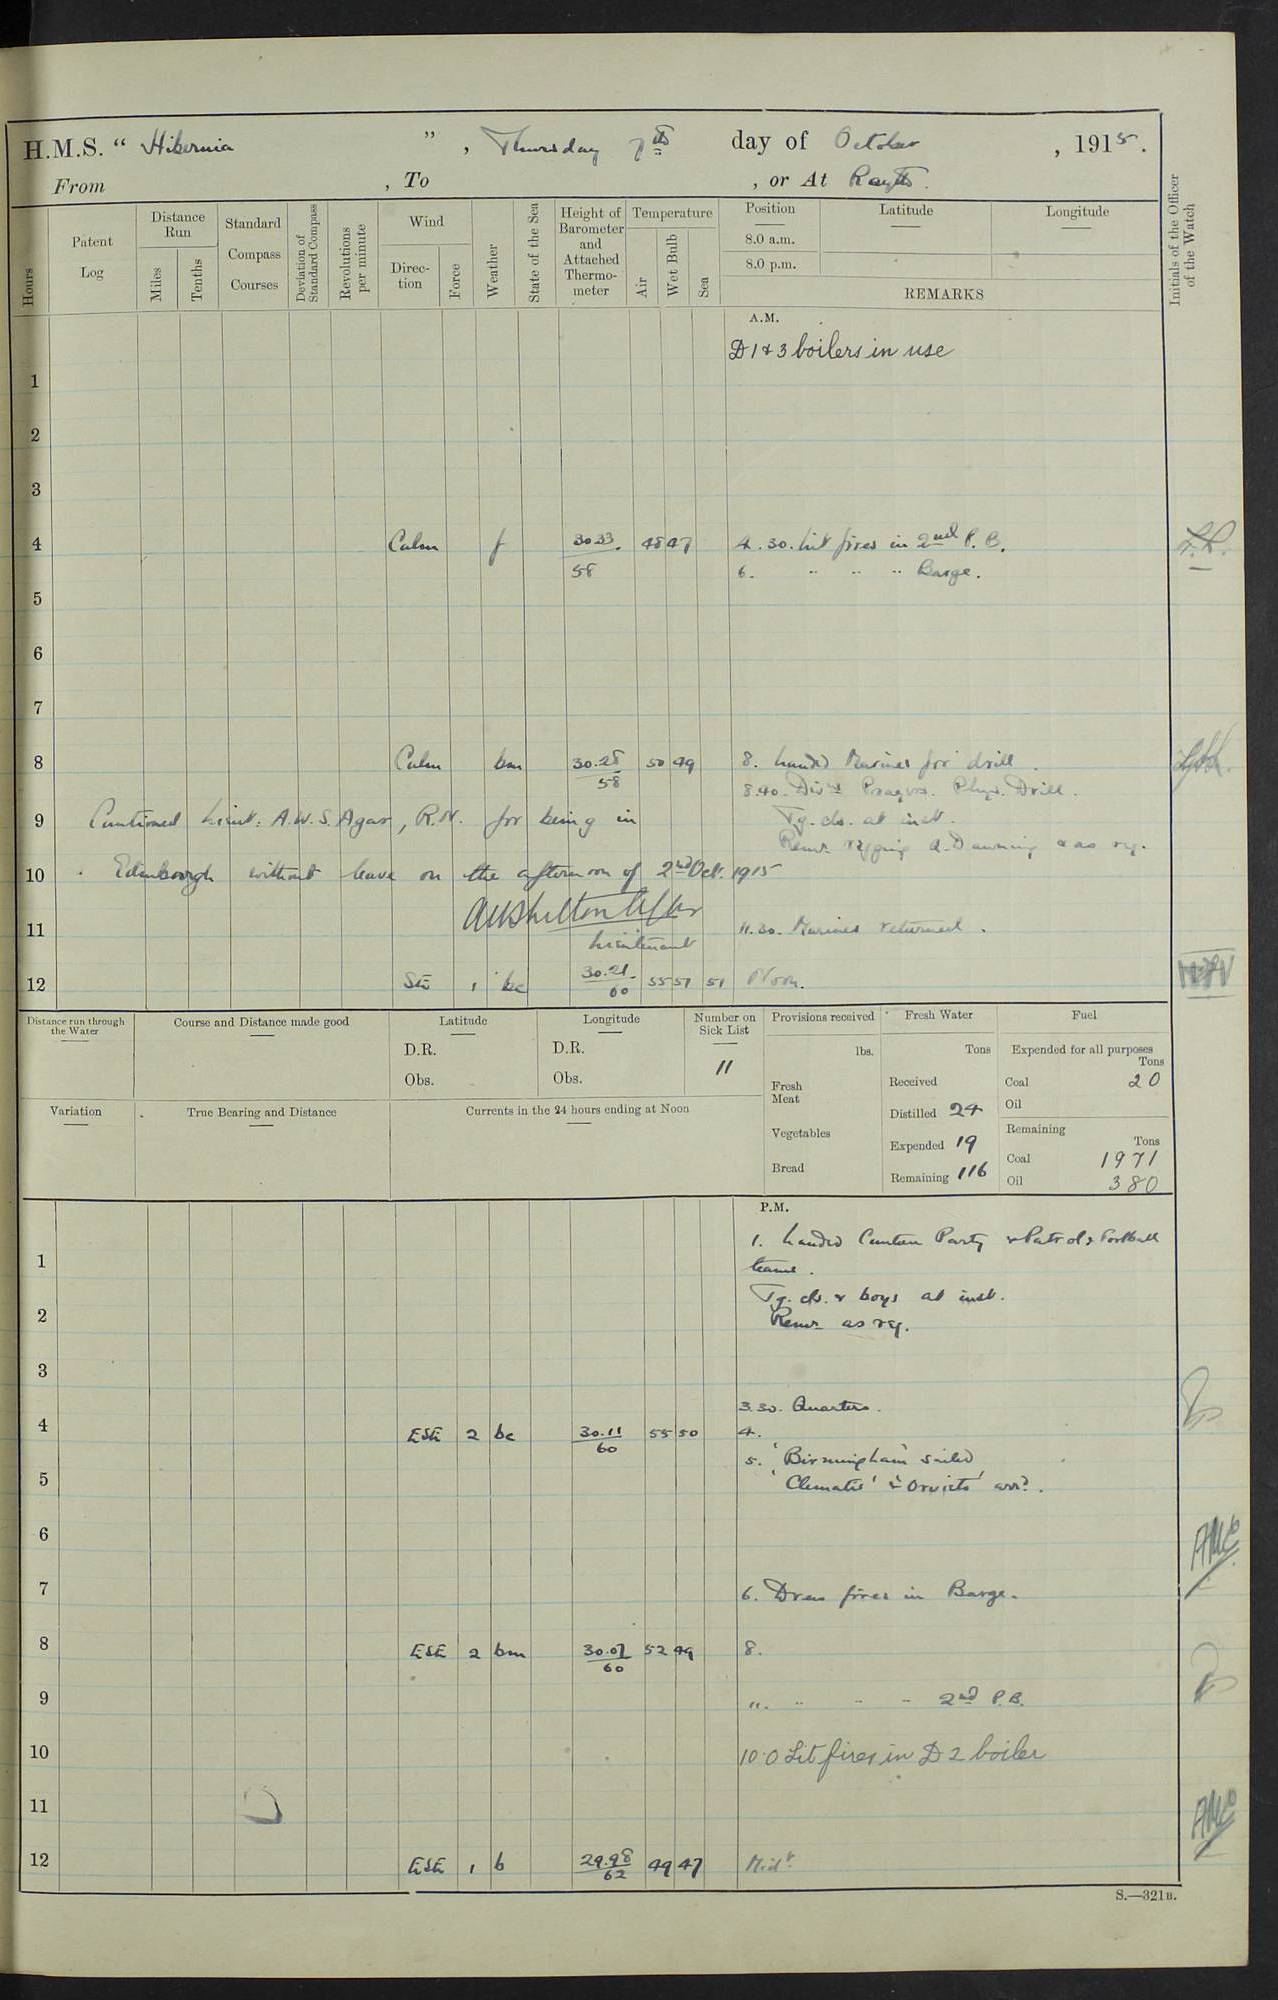 H.M.S. “ Hibernia ”, Thursday 7th day of October, 1915.
From , To , or At Rosyth.
Hours
Patent Log
Distance Run
Miles
Tenths
Standard Compass Courses
Deviation of Standard Compass
Revolutions per minute
Wind
Direction
Force
Weather
State of the Sea
Height of Barometer and Attached Thermometer
Temperature
Air
Wet Bulb
Sea
Position
8.0 a.m.
8.0 p.m.
Latitude
Longitude
REMARKS
Initials of the Officer of the Watch
A.M.
D 1 & 3 boilers in use
1
2
3
4 Calm f 30.33 48 47 4.30. Lit fires in 2nd P.B.
58 6. " " " Barge.
5
6
7
8 Calm bm 30.28 50 49 8. Landed Marines for drill.
58 8.40. Divns Prayers. Phys. Drill.
9 Cautioned Lieut: A.W.S. Agar, R.N. for being in Tg. cls. at inst.
Remr rigging & as rq.
10 Edinboorgh without leave on the afternoon of 2nd Oct. 1915
11 Lieutenant 11.30. Marines returned.
12 1 bc 30.21 55 51 51 Noon.
60
Distance run through the Water
Course and Distance made good
Latitude
D.R.
Obs.
Longitude
D.R.
Obs.
Number on Sick List
11
Provisions received
lbs.
Fresh Meat
Vegetables
Bread
Fresh Water
Tons
Received
Distilled 24
Expended 19
Remaining 116
Fuel
Expended for all purposes
Tons
Coal 20
Oil
Remaining
Tons
Coal 1971
Oil 380
Variation
True Bearing and Distance
Currents in the 24 hours ending at Noon
P.M.
1. Landed Canteen Party & Patrol & Football
1 teams.
Tg. cls. & boys at inst.
2 Remr as rq.
3
3.30. Quarters.
4 ESE 2 bc 30.11 55 50 4.
60
5. 'Birmingham' sailed
5 'Clematis' & 'Orvieto' arrd.
6
7 6. Drew fires in Barge.
8 ESE 2 bm 30.07 52 49 8.
60
9 " " " " 2nd P.B.
10 10.0 Lit fires in D 2 boiler
11
12 ESE 1 b 29.98 49 47 Midt
62
S.—321B.